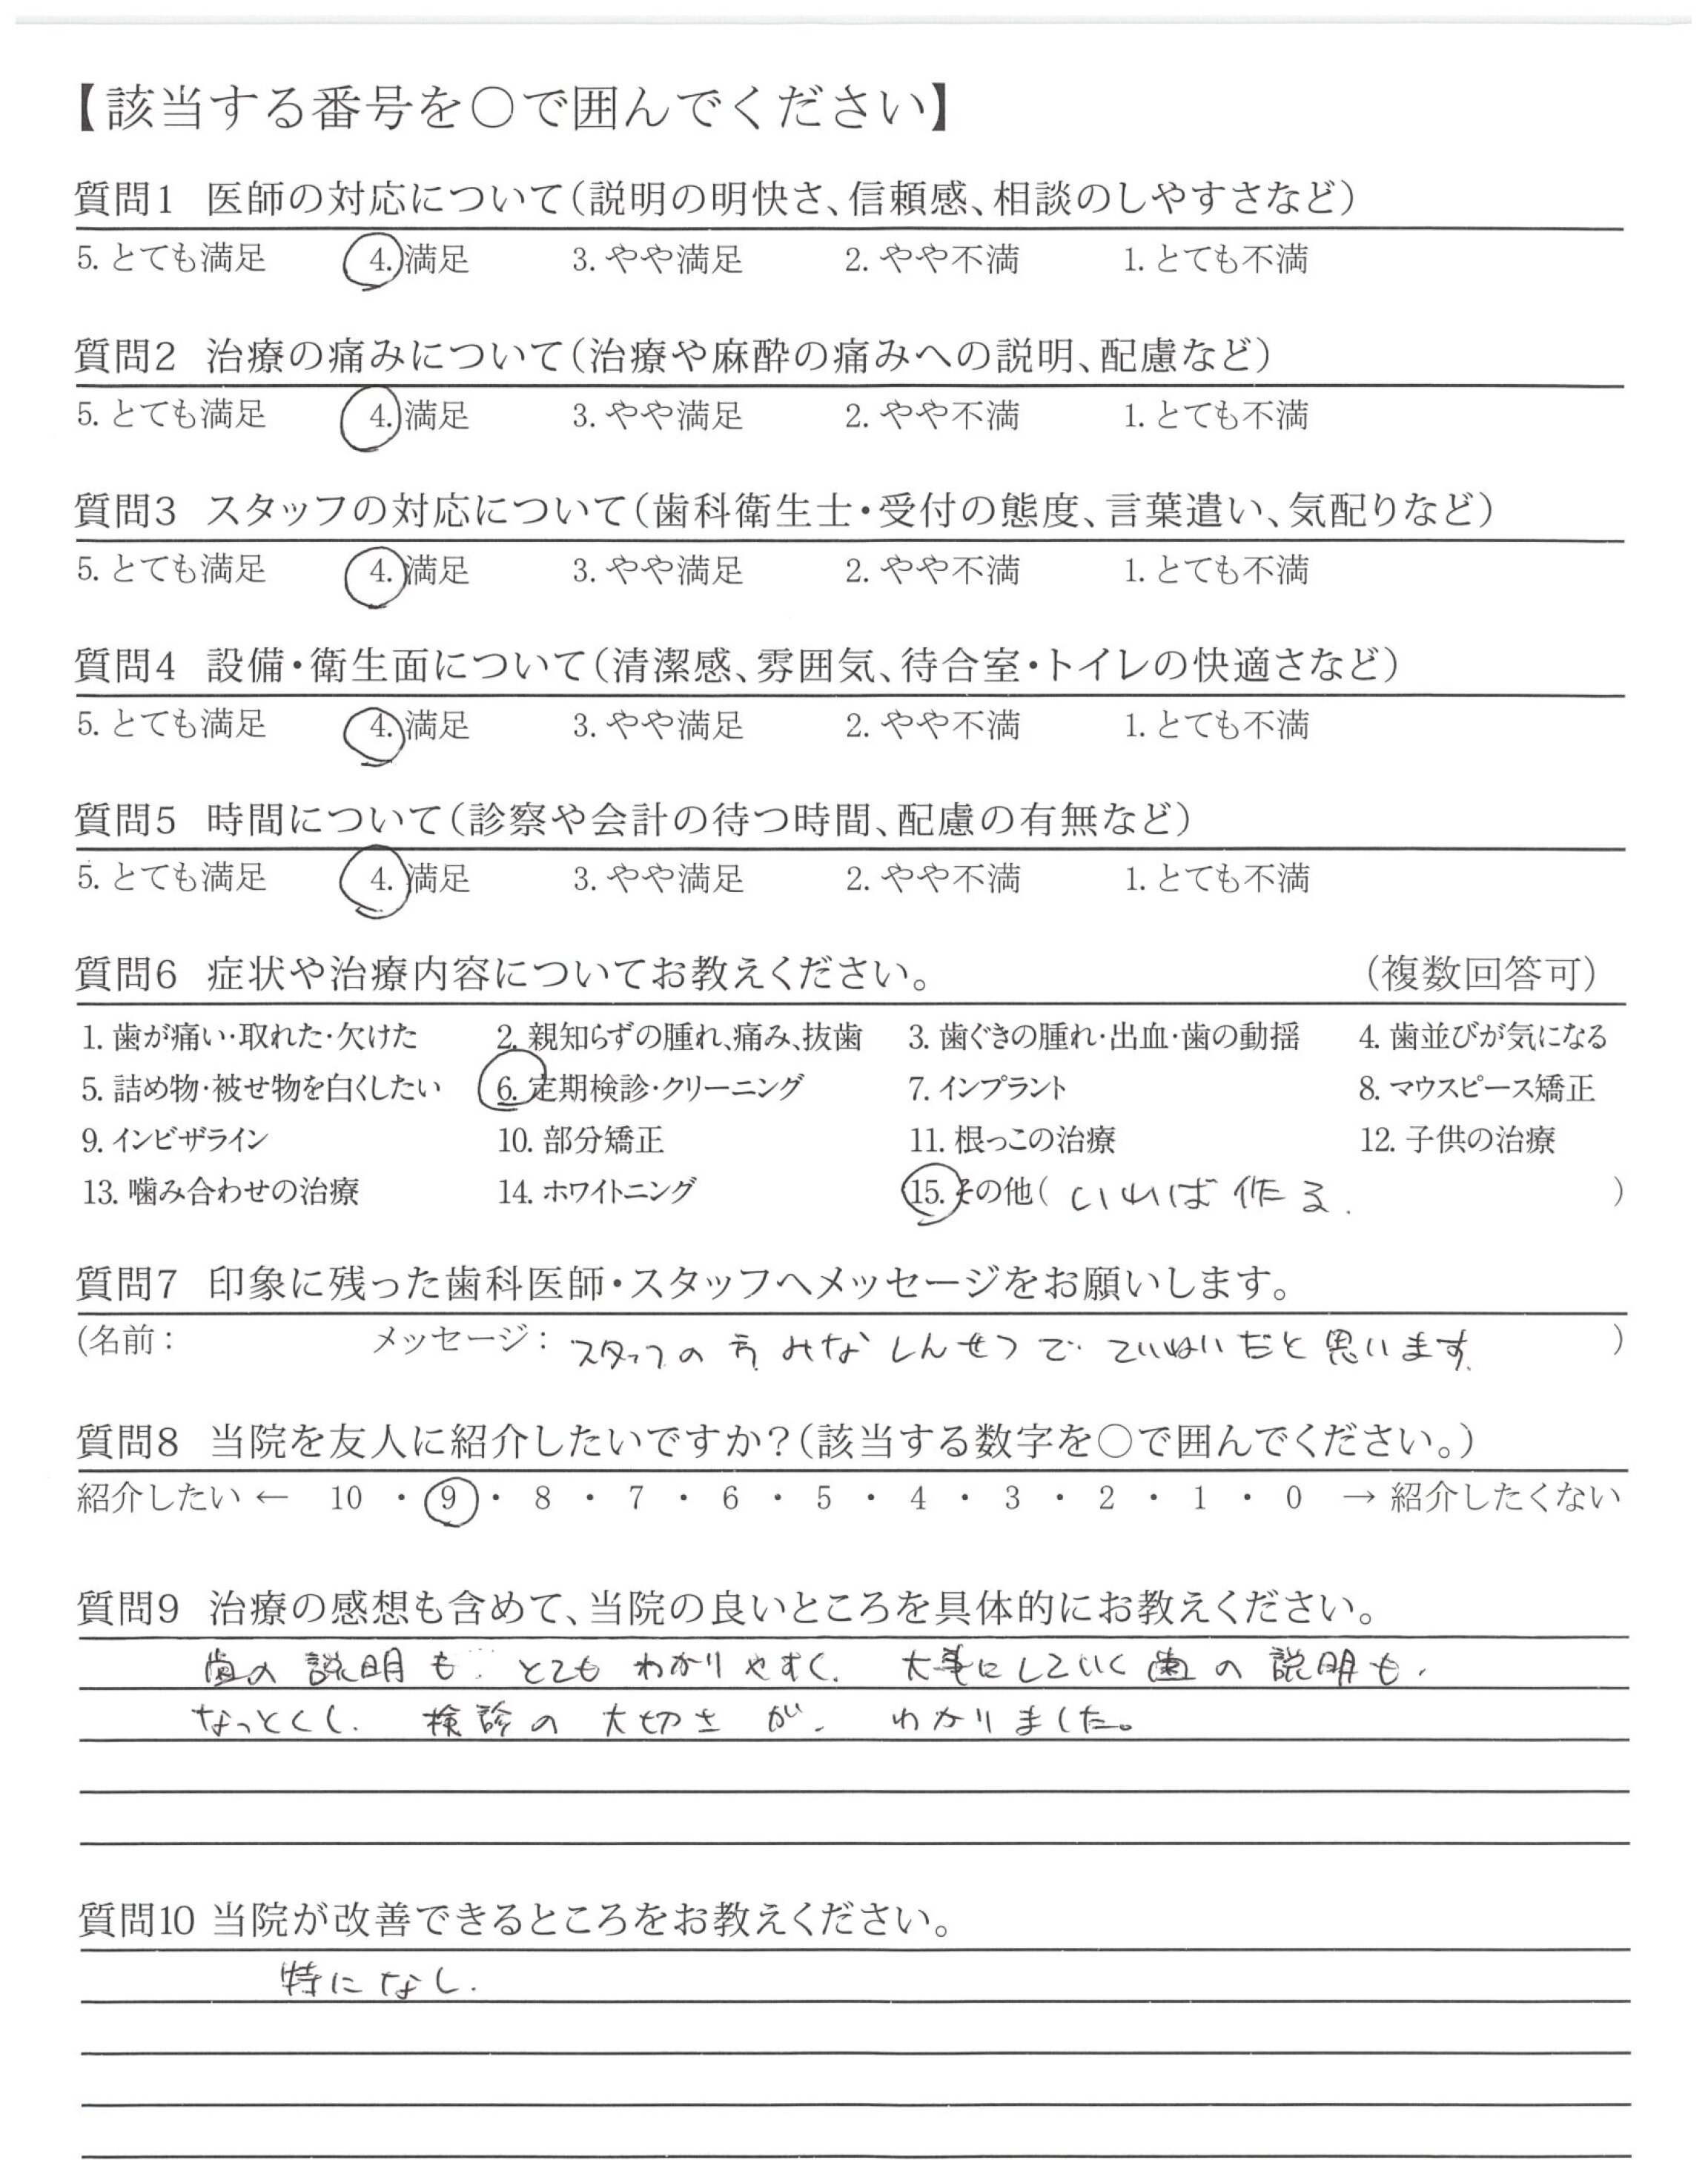 【該当する番号を○で囲んでください】
質問1 医師の対応について（説明の明快さ、信頼感、相談のしやすさなど）
5. とても満足 4. 満足 3. やや満足 2. やや不満 1. とても不満
質問2 治療の痛みについて（治療や麻酔の痛みへの説明、配慮など）
5. とても満足 4. 満足 3. やや満足 2. やや不満 1. とても不満
質問3 スタッフの対応について（歯科衛生士・受付の態度、言葉遣い、気配りなど）
5. とても満足 4. 満足 3. やや満足 2. やや不満 1. とても不満
質問4 設備・衛生面について（清潔感、雰囲気、待合室・トイレの快適さなど）
5. とても満足 4. 満足 3. やや満足 2. やや不満 1. とても不満
質問5 時間について（診察や会計の待つ時間、配慮の有無など）
5. とても満足 4. 満足 3. やや満足 2. やや不満 1. とても不満
質問6 症状や治療内容についてお教えください。 （複数回答可）
1. 歯が痛い・取れた・欠けた 2. 親知らずの腫れ、痛み、抜歯 3. 歯ぐきの腫れ・出血・歯の動揺 4. 歯並びが気になる
5. 詰め物・被せ物を白くしたい 6. 定期検診・クリーニング 7. インプラント 8. マウスピース矯正
9. インビザライン 10. 部分矯正 11. 根っこの治療 12. 子供の治療
13. 噛み合わせの治療 14. ホワイトニング 15. その他（ いれば作る. ）
質問7 印象に残った歯科医師・スタッフへメッセージをお願いします。
（名前： メッセージ：スタッフの方みなしんせつで ていねいだと思います. ）
質問8 当院を友人に紹介したいですか？（該当する数字を○で囲んでください。）
紹介したい ← 10 ・ 9 ・ 8 ・ 7 ・ 6 ・ 5 ・ 4 ・ 3 ・ 2 ・ 1 ・ 0 → 紹介したくない
質問9 治療の感想も含めて、当院の良いところを具体的にお教えください。
歯の説明も とてもわかりやすく. 大事にしていく歯の説明も、
なっとくし. 検診の大切さが、わかりました。
質問10 当院が改善できるところをお教えください。
特になし.